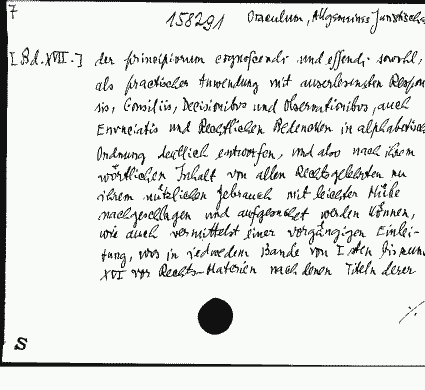 7
158291 Oraculum, Allgemeines Juristisch
[Bd. XVII.] der principiorum cognoscendi und essendi sowohl,
als practischer Anwendung mit auserlesensten Respon
sis, Consiliis, Decisionibus und Observationibus, auch
Enunciatis und Rechtlichen Bedencken in alphabetisch
Ordnung deutlich entworfen, und also nach ihrem
wörtlichen Inhalt von allen Rechtsgelehrten zu
ihrem nützlichen Gebrauch mit leichter Mühe
nachgeschlagen und aufgesuchet werden können,
wie auch vermittelst einer vorgängigen Einlei-
tung, was in iedwedem Bande von I sten bis zum
XVI vor Rechts-Materien nach denen Titeln derer
./.
S